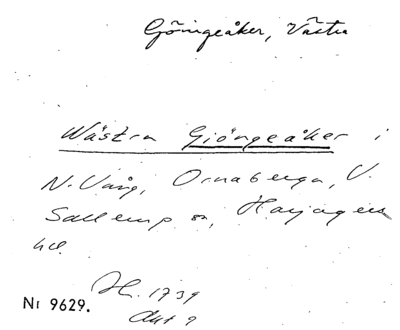 Göingeåker, Västra
Wästra Giöngeåker i
N. Vång, Ornaberga, V.
Sallerup sn, Harjagers
hd.
H. 1739
Akt 9
Nr 9629.